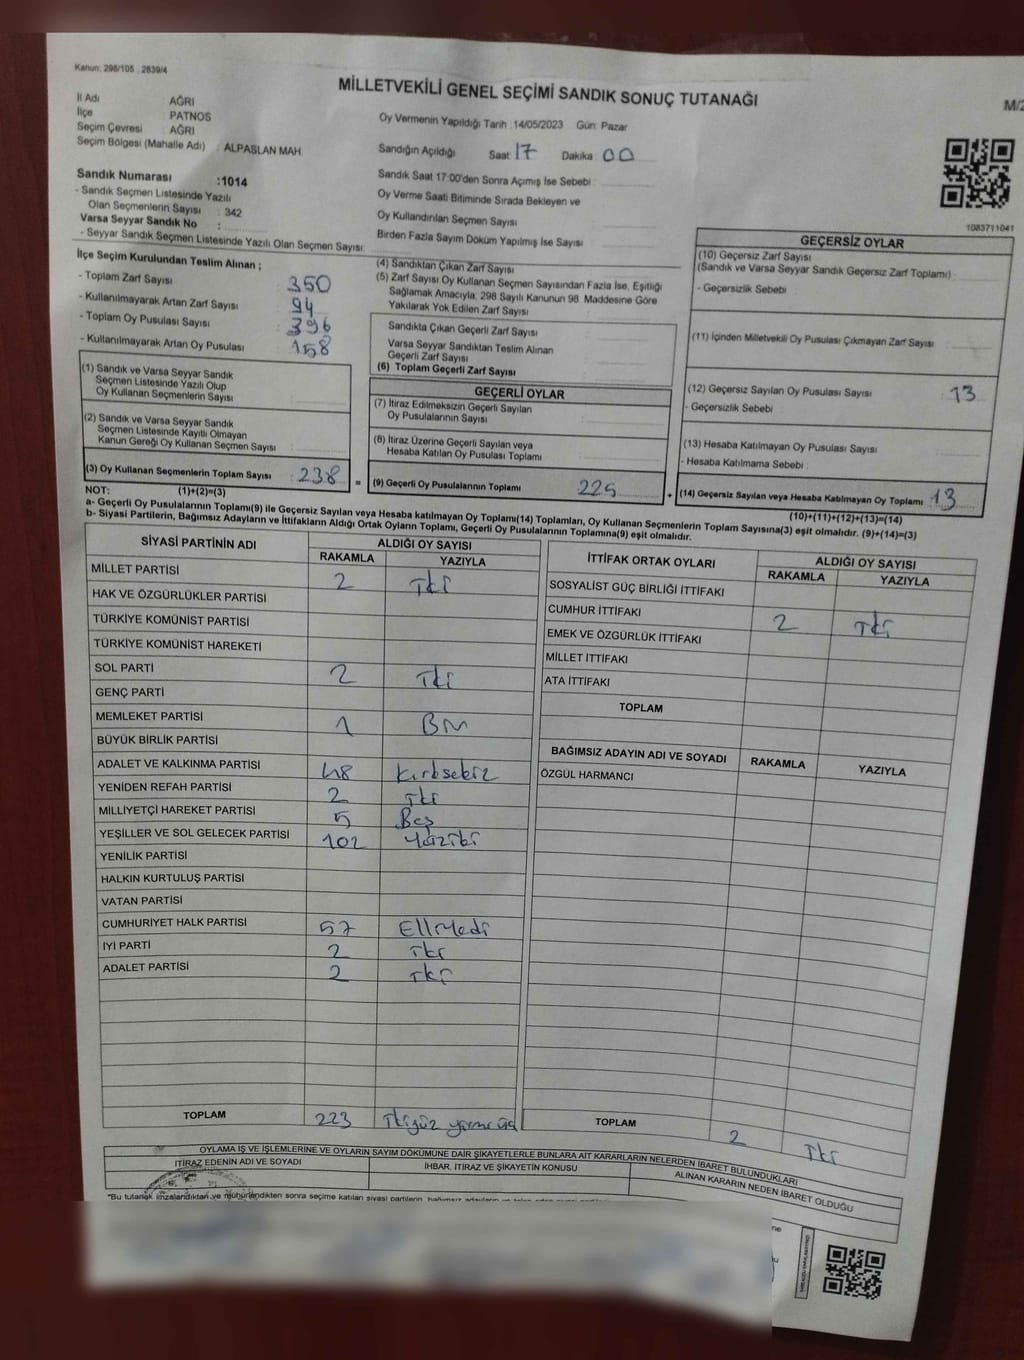 Kanun: 298/105 2839/4
MİLLETVEKİLİ GENEL SEÇİMİ SANDIK SONUÇ TUTANAĞI
M/2
İl Adı AĞRI
İlçe : PATNOS
Seçim Çevresi : AĞRI
Seçim Bölgesi (Mahalle Adı) : ALPASLAN MAH
Sandık Numarası :1014
- Sandık Seçmen Listesinde Yazılı
Olan Seçmenlerin Sayısı : 342
Varsa Seyyar Sandık No :
- Seyyar Sandık Seçmen Listesinde Yazılı Olan Seçmen Sayısı:
Oy Vermenin Yapıldığı Tarih :14/05/2023 Gün: Pazar
Sandığın Açıldığı Saat: 17 Dakika: 00
Sandık Saat 17:00'den Sonra Açımış İse Sebebi :
Oy Verme Saati Bitiminde Sırada Bekleyen ve
Oy Kullandırılan Seçmen Sayısı
Birden Fazla Sayım Döküm Yapılmış İse Sayısı
1083711041
İlçe Seçim Kurulundan Teslim Alınan ;
- Toplam Zarf Sayısı : 350
- Kullanılmayarak Artan Zarf Sayısı : 94
- Toplam Oy Pusulası Sayısı : 396
- Kullanılmayarak Artan Oy Pusulası : 158
(1) Sandık ve Varsa Seyyar Sandık
Seçmen Listesinde Yazılı Olup
Oy Kullanan Seçmenlerin Sayısı :
(2) Sandık ve Varsa Seyyar Sandık
Seçmen Listesinde Kayıtlı Olmayan
Kanun Gereği Oy Kullanan Seçmen Sayısı :
(3) Oy Kullanan Seçmenlerin Toplam Sayısı : 238
(1)+(2)=(3)
(4) Sandıktan Çıkan Zarf Sayısı
(5) Zarf Sayısı Oy Kullanan Seçmen Sayısından Fazla İse, Eşitliği
Sağlamak Amacıyla, 298 Sayılı Kanunun 98. Maddesine Göre
Yakılarak Yok Edilen Zarf Sayısı :
Sandıkta Çıkan Geçerli Zarf Sayısı
Varsa Seyyar Sandıktan Teslim Alınan
Geçerli Zarf Sayısı
(6) Toplam Geçerli Zarf Sayısı
GEÇERLİ OYLAR
(7) İtiraz Edilmeksizin Geçerli Sayılan
Oy Pusulalarının Sayısı :
(8) İtiraz Üzerine Geçerli Sayılan veya
Hesaba Katılan Oy Pusulası Toplamı :
= (9) Geçerli Oy Pusulalarının Toplamı : 225
GEÇERSİZ OYLAR
(10) Geçersiz Zarf Sayısı
(Sandık ve Varsa Seyyar Sandık Geçersiz Zarf Toplamı) :
- Geçersizlik Sebebi :
(11) İçinden Milletvekili Oy Pusulası Çıkmayan Zarf Sayısı
(12) Geçersiz Sayılan Oy Pusulası Sayısı : 13
- Geçersizlik Sebebi
(13) Hesaba Katılmayan Oy Pusulası Sayısı
- Hesaba Katılmama Sebebi :
+ (14) Geçersiz Sayılan veya Hesaba Katılmayan Oy Toplamı : 13
(10)+(11)+(12)+(13)=(14)
NOT:
a- Geçerli Oy Pusulalarının Toplamı(9) ile Geçersiz Sayılan veya Hesaba katılmayan Oy Toplamı(14) Toplamları, Oy Kullanan Seçmenlerin Toplam Sayısına(3) eşit olmalıdır. (9)+(14)=(3)
b- Siyasi Partilerin, Bağımsız Adayların ve İttifakların Aldığı Ortak Oyların Toplamı, Geçerli Oy Pusulalarının Toplamına(9) eşit olmalıdır.
SİYASİ PARTİNİN ADI ALDIĞI OY SAYISI
RAKAMLA YAZIYLA
MİLLET PARTİSİ 2 İki
HAK VE ÖZGÜRLÜKLER PARTİSİ
TÜRKİYE KOMÜNİST PARTİSİ
TÜRKİYE KOMÜNİST HAREKETİ
SOL PARTİ 2 İki
GENÇ PARTİ
MEMLEKET PARTİSİ 1 Bir
BÜYÜK BİRLİK PARTİSİ
ADALET VE KALKINMA PARTİSİ 48 Kırksekiz
YENİDEN REFAH PARTİSİ 2 İki
MİLLİYETÇİ HAREKET PARTİSİ 5 Beş
YEŞİLLER VE SOL GELECEK PARTİSİ 102 Yüziki
YENİLİK PARTİSİ
HALKIN KURTULUŞ PARTİSİ
VATAN PARTİSİ
CUMHURİYET HALK PARTİSİ 57 Elliyedi
İYİ PARTİ 2 İki
ADALET PARTİSİ 2 İki
TOPLAM 223 İkiyüz yirmi üç
İTTİFAK ORTAK OYLARI ALDIĞI OY SAYISI
RAKAMLA YAZIYLA
SOSYALİST GÜÇ BİRLİĞİ İTTİFAKI
CUMHUR İTTİFAKI 2 İki
EMEK VE ÖZGÜRLÜK İTTİFAKI
MİLLET İTTİFAKI
ATA İTTİFAKI
TOPLAM
BAĞIMSIZ ADAYIN ADI VE SOYADI RAKAMLA YAZIYLA
ÖZGÜL HARMANCI
TOPLAM 2 İki
OYLAMA İŞ VE İŞLEMLERİNE VE OYLARIN SAYIM DÖKÜMÜNE DAİR ŞİKAYETLERLE BUNLARA AİT KARARLARIN NELERDEN İBARET BULUNDUKLARI
İTİRAZ EDENİN ADI VE SOYADI İHBAR, İTİRAZ VE ŞİKAYETİN KONUSU ALINAN KARARIN NEDEN İBARET OLDUĞU
*Bu tutanak imzalandıktan ve mühürlendikten sonra seçime katılan siyasi partilerin, bağımsız adayların